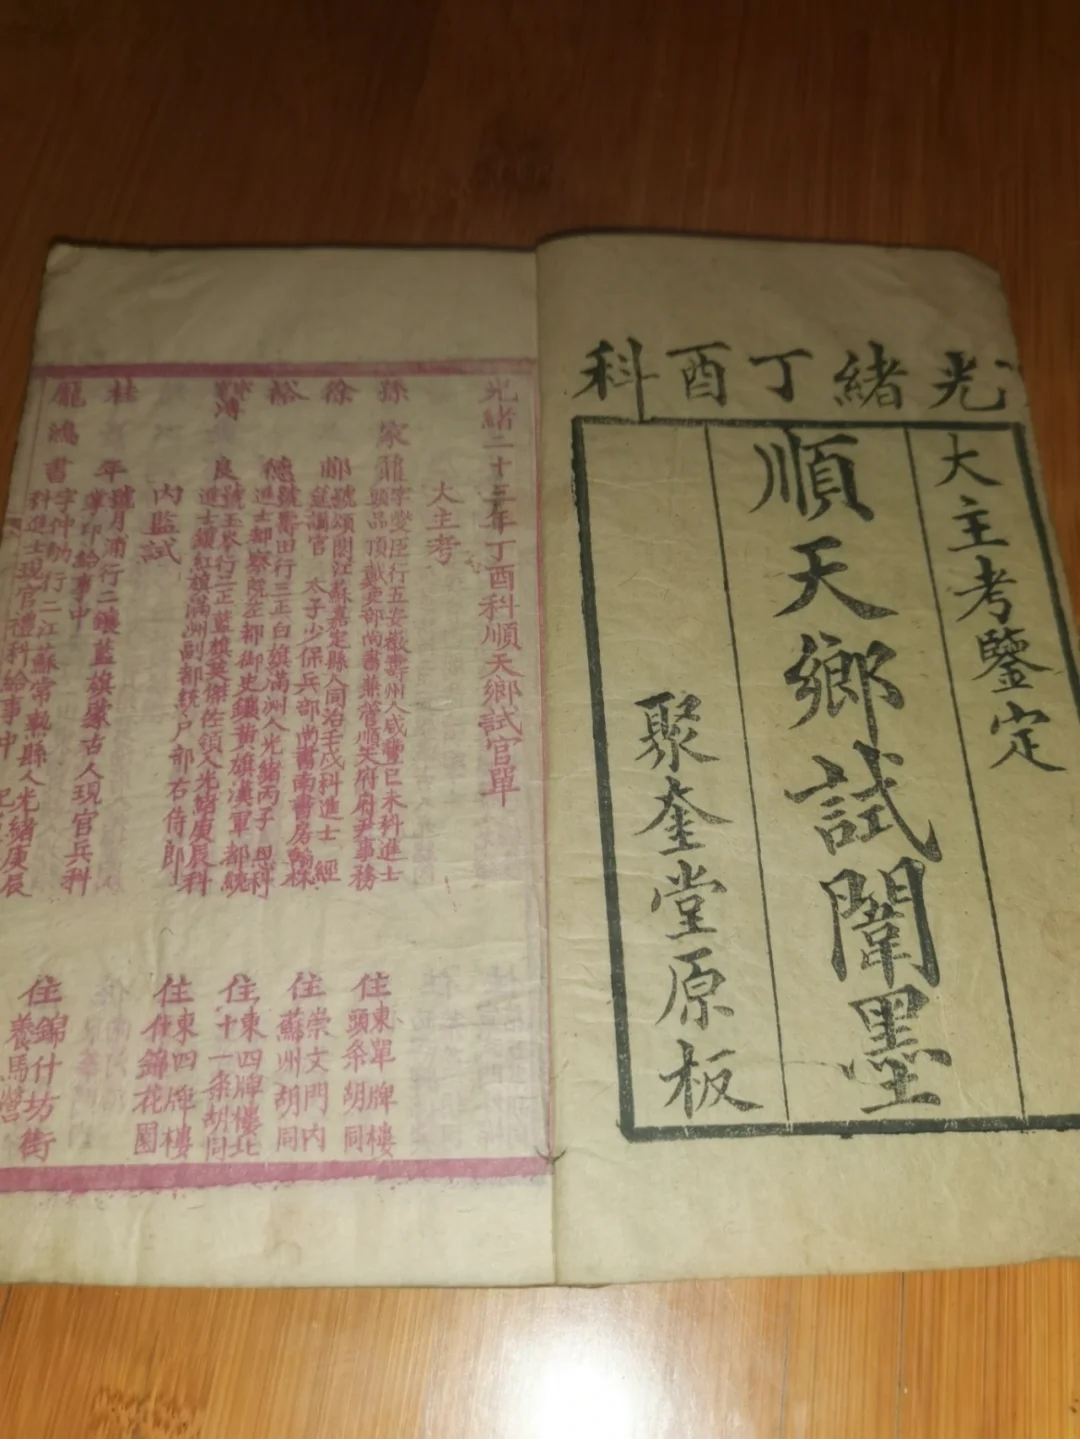 光緒丁酉科
大主考鑒定
順天鄉試闈墨
聚奎堂原板
光緒二十三年丁酉科順天鄉試官單
大主考
孫家鼐
字燮臣行五安徽壽州人咸豐己未科進士
頭品頂戴吏部尚書兼管順天府府尹事務
住東單牌樓
頭條胡同
徐郙
號頌閣江蘇嘉定縣人同治壬戌科進士 經
筵講官 太子少保兵部尚書南書房翰林
住崇文門內
蘇州胡同
裕德
號壽田行三正白旗滿洲人光緒丙子 恩科
進士都察院左都御史鑲黃旗漢軍都統
住東四牌樓北
十一條胡同
溥良
號玉岑行三正藍旗英傑佐領人光緒庚辰科
進士鑲紅旗滿洲副都統戶部右侍郎
住東四牌樓
什錦花園
內監試
桂年
號月浦行二鑲藍旗蒙古人現官兵科
掌印給事中
龐鴻書
字仲劬行二江蘇常熟縣人光緒庚辰
科進士現官禮科給事中
住錦什坊街
養馬營